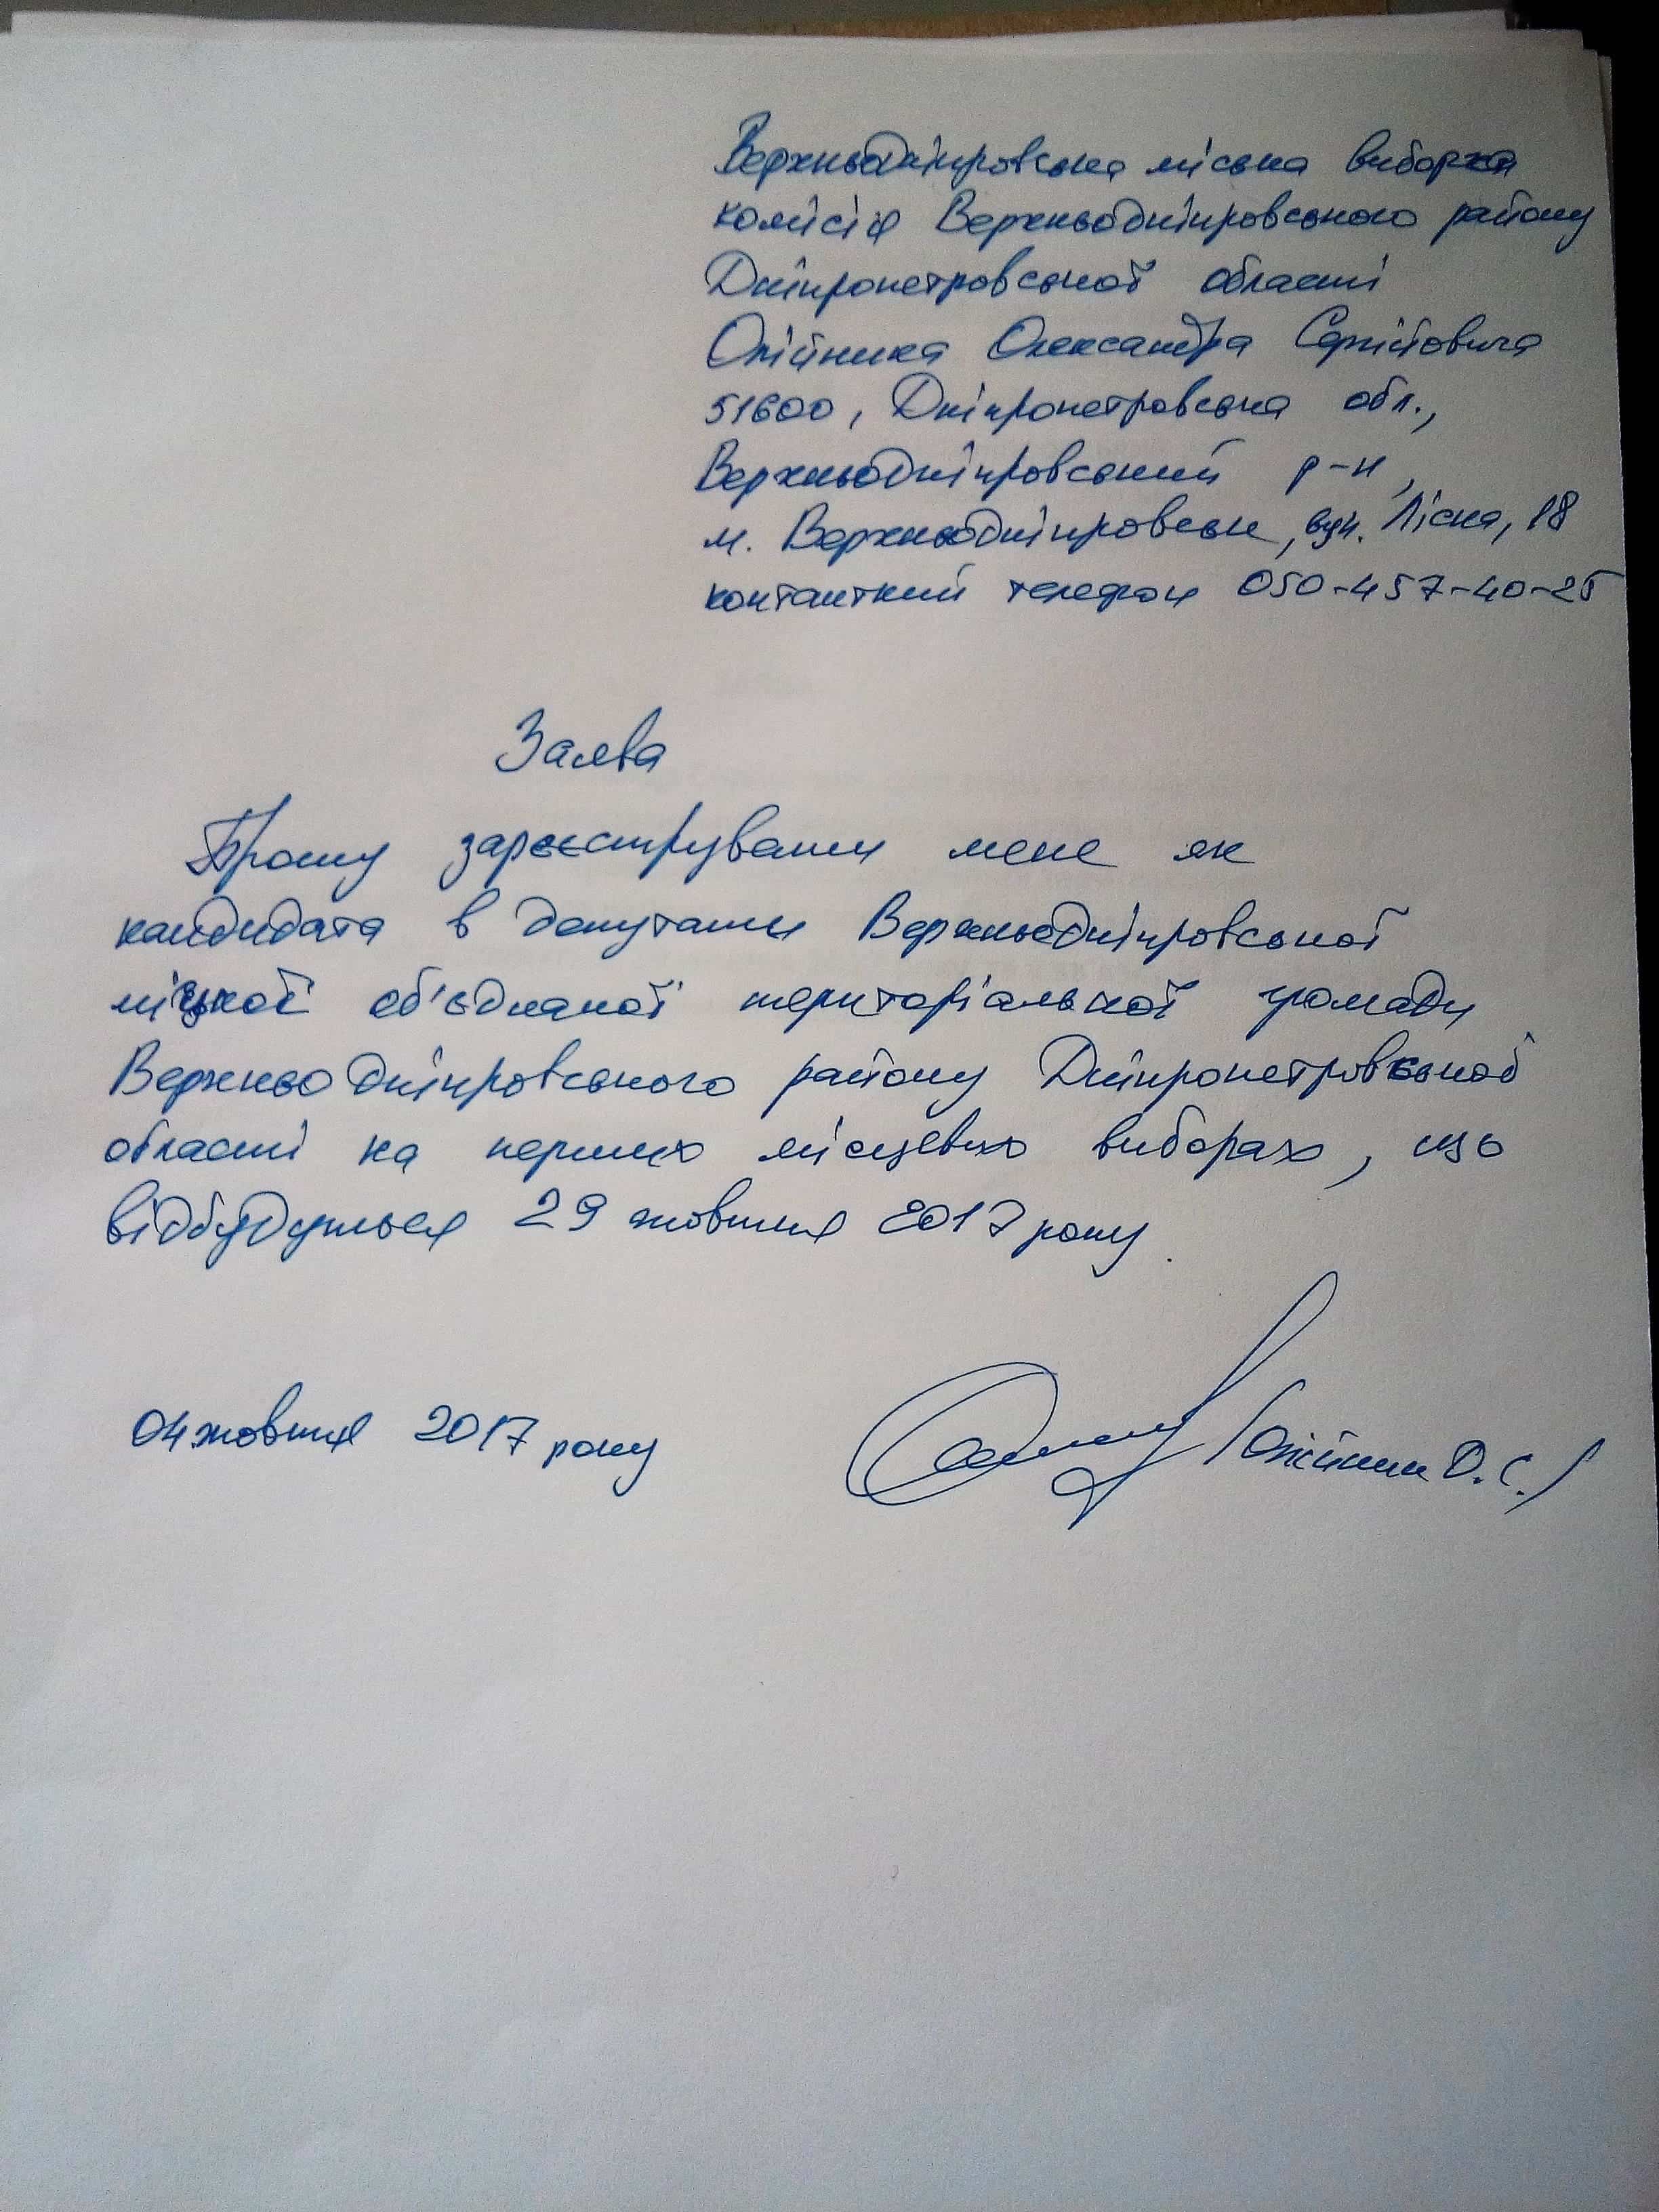 Верхньодніпровська міська виборча
комісія Верхньодніпровського району
Дніпропетровської області
Олійника Олександра Сергійовича
51600, Дніпропетровська обл.,
Верхньодніпровський р-н,
м. Верхньодніпровськ, вул. Лісна, 18
контактний телефон 050-457-40-25
Заява
Прошу зареєструвати мене як
кандидата в депутати Верхньодніпровської
міської об'єднаної територіальної громади
Верхньодніпровського району Дніпропетровської
області на перших місцевих виборах, що
відбудуться 29 жовтня 2017 року.
04 жовтня 2017 року /Олійник О.С./